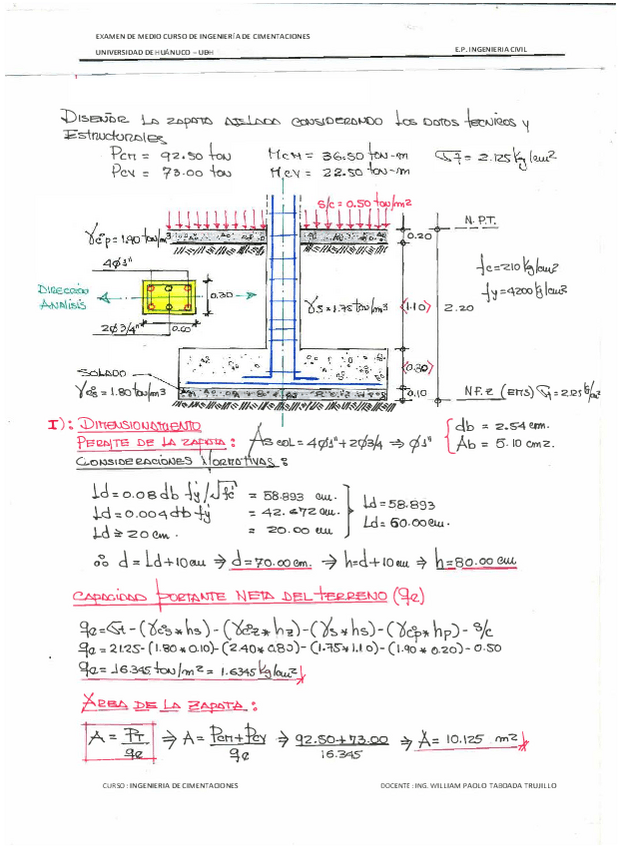 EXAMEN DE MEDIO CURSO DE INGENIERÍA DE CIMENTACIONES
UNIVERSIDAD DE HUÁNUCO – UDH
E.P. INGENIERIA CIVIL
DISEÑAR LA ZAPATA AISLADA CONSIDERANDO LOS DATOS TECNICOS Y
ESTRUCTURALES
PCM = 92.50 TON MCM = 36.50 TON-m σt = 2.125 Kg/cm²
PCV = 73.00 TON MCV = 22.50 TON-m
S/C = 0.50 TON/m²
N.P.T.
γc°p = 1.90 TON/m³
0.20
4ø1"
f'c = 210 Kg/cm²
fy = 4200 Kg/cm²
DIRECCIÓN
ANÁLISIS
0.30
γs = 1.75 TON/m³
<1.10>
2.20
2ø3/4"
0.60
SOLADO
<0.80>
γc°s = 1.80 TON/m³
0.10
N.F.Z (EMS) σt = 2.125 Kg/cm²
I): DIMENSIONAMIENTO
PERALTE DE LA ZAPATA: AS COL = 4ø1" + 2ø3/4 ⇒ ø1" { db = 2.54 cm.
Ab = 5.10 cm2.
CONSIDERACIONES NORMATIVAS:
Ld = 0.08 db fy/√f'c = 58.893 cm.
Ld = 0.004 db fy = 42.672 cm.
Ld ≥ 20 cm. = 20.00 cm.
Ld = 58.893
Ld = 60.00 cm.
∴ d = Ld + 10 cm ⇒ d = 70.00 cm. ⇒ h = d + 10 cm ⇒ h = 80.00 cm
CAPACIDAD PORTANTE NETA DEL TERRENO (qe)
qe = σt - (γc°s * hs) - (γc°z * hz) - (γs * hs) - (γc°p * hp) - S/C
qe = 21.25 - (1.80 * 0.10) - (2.40 * 0.80) - (1.75 * 1.10) - (1.90 * 0.20) - 0.50
qe = 16.345 TON/m² = 1.6345 Kg/cm²
AREA DE LA ZAPATA:
A = PT/qe ⇒ A = PCM + PCV/qe ⇒ 92.50 + 73.00/16.345 ⇒ A = 10.125 m²
CURSO : INGENIERIA DE CIMENTACIONES
DOCENTE : ING. WILLIAM PAOLO TABOADA TRUJILLO